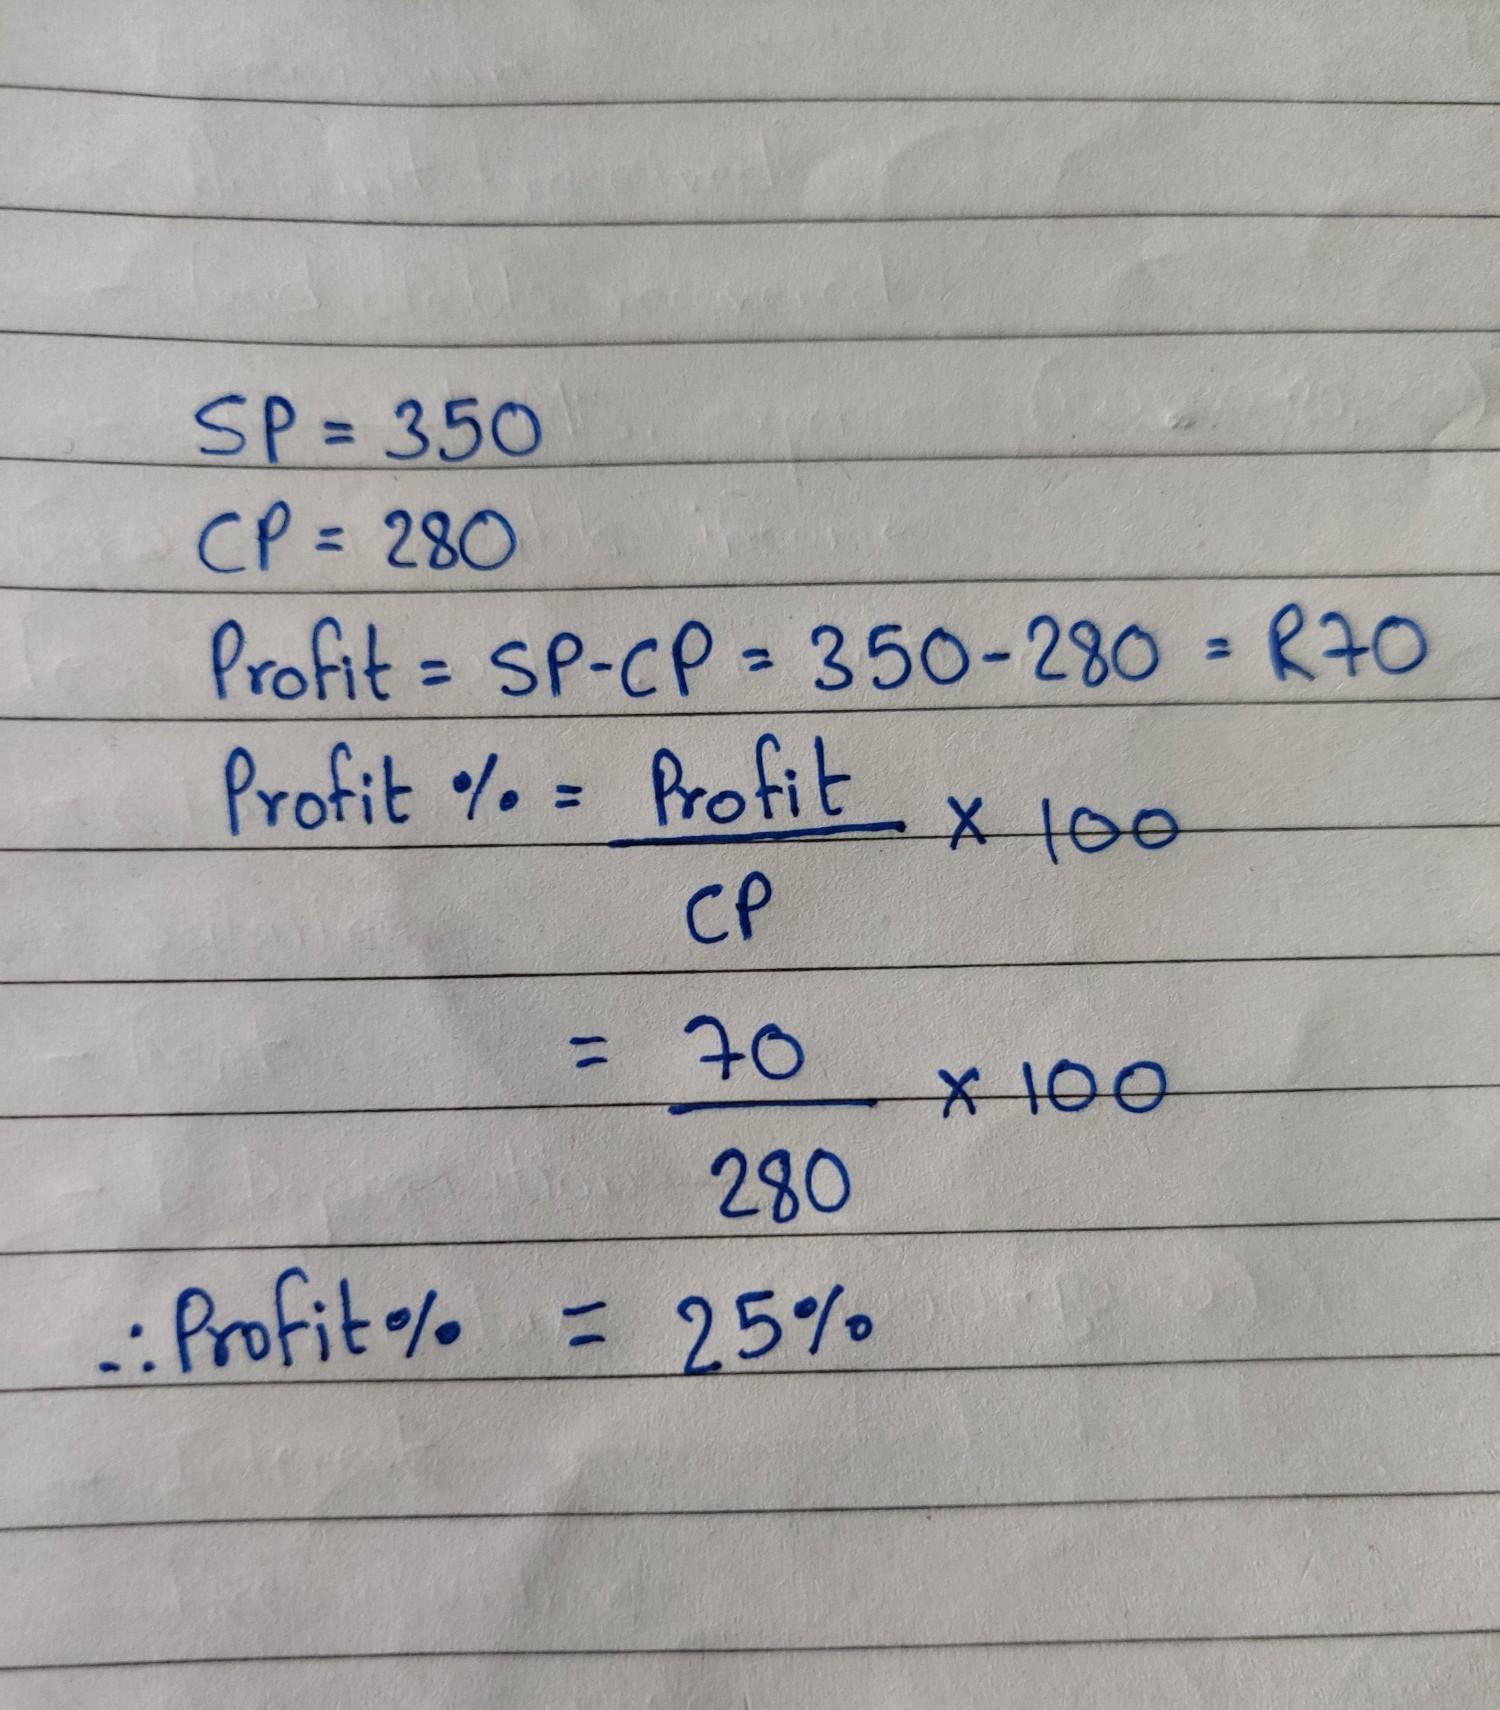 SP = 350
CP = 280
Profit = SP-CP = 350-280 = R70
Profit % = Profit / CP x 100
= 70 / 280 x 100
∴ Profit % = 25%